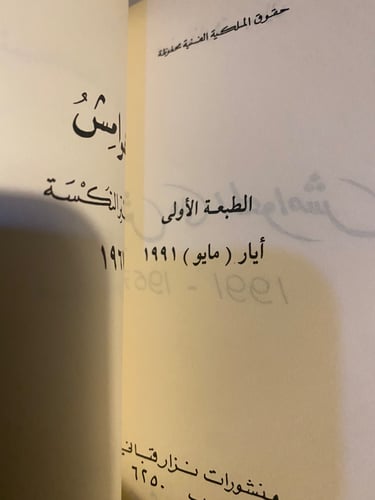 حقوق الملكية الفنية محفوظة
الطبعة الأولى
أيار ( مايو ) ١٩٩١
منشورات نزار قباني
٦٢٥٠
النَكْسَة